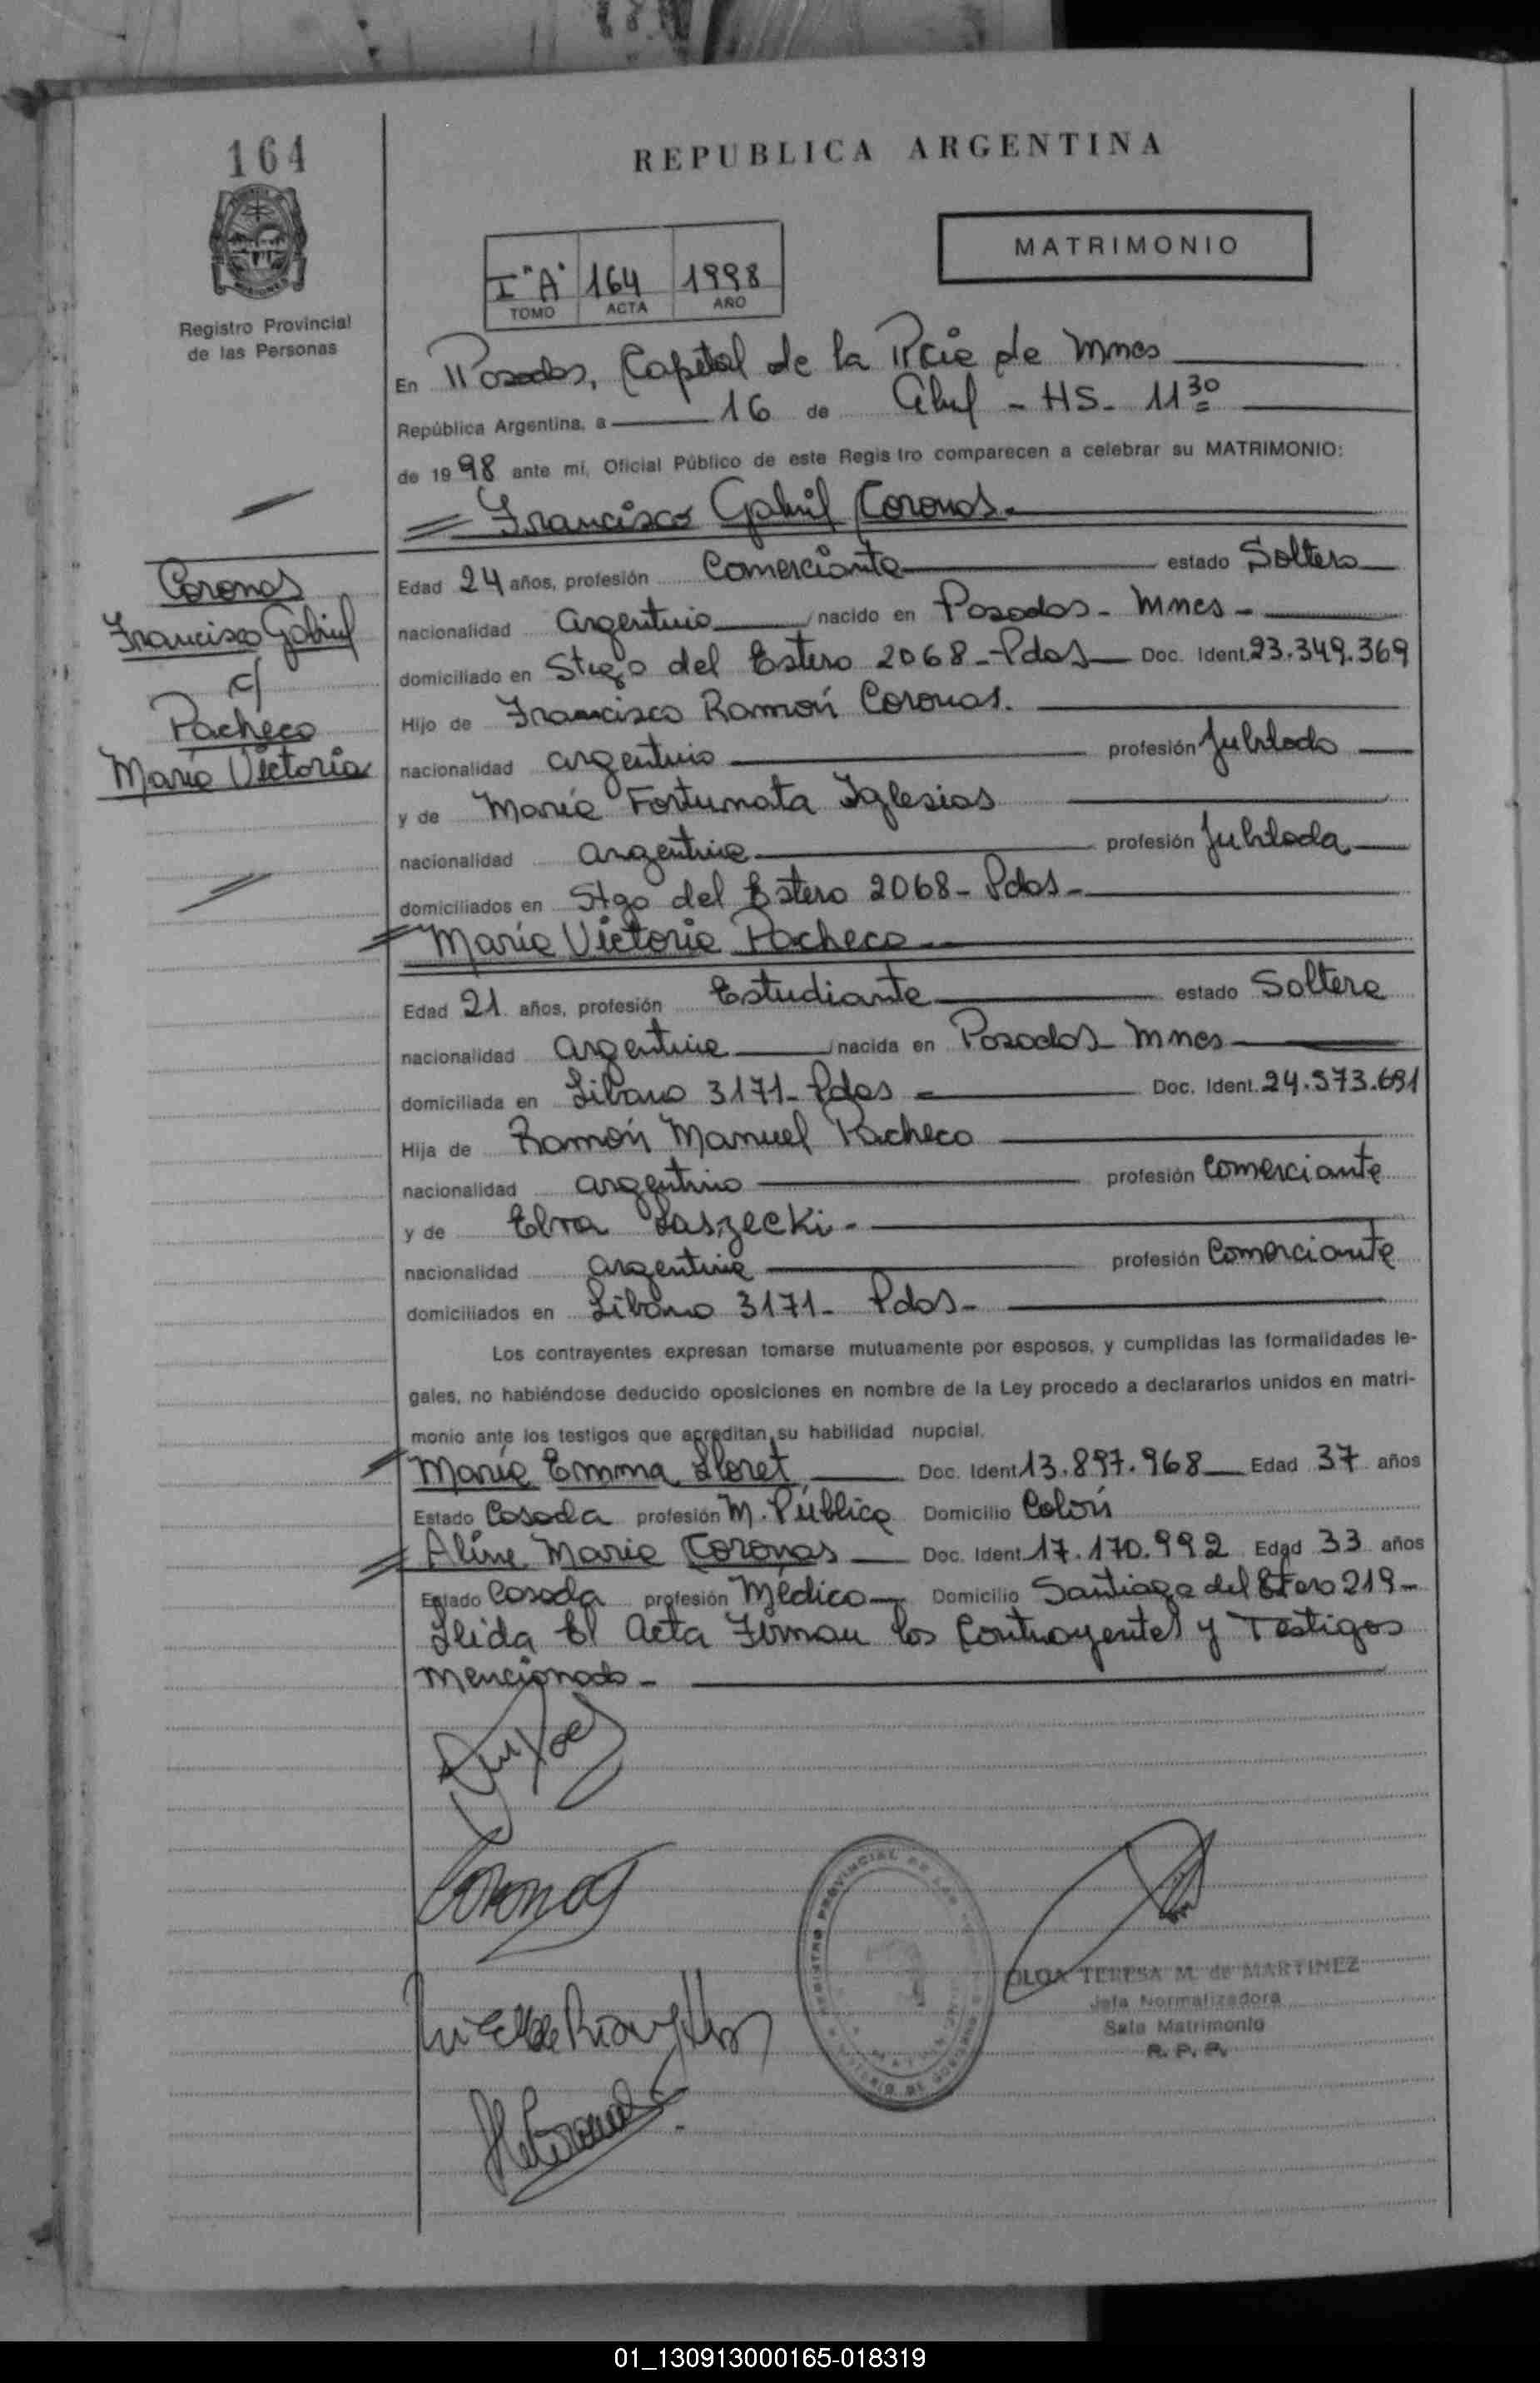 164
REPUBLICA ARGENTINA
MATRIMONIO
I "A" 164 1998
TOMO ACTA AÑO
Registro Provincial
de las Personas
En Posadas, Capital de la Pcia de Mnes
República Argentina, a 16 de Abril - HS. 11 30
de 1998 ante mí, Oficial Público de este Registro comparecen a celebrar su MATRIMONIO:
Francisco Gabriel Coronas.
Coronas
Francisco Gabriel
c/
Pacheco
María Victoria
Edad 24 años, profesión Comerciante estado Soltero
nacionalidad argentino nacido en Posadas - Mnes -
domiciliado en Stgo del Estero 2068 - Pdas Doc. Ident. 23.349.369
Hijo de Francisco Ramón Coronas.
nacionalidad argentino profesión Jubilado
y de María Fortunata Iglesias
nacionalidad argentina profesión Jubilada
domiciliados en Stgo del Estero 2068 - Pdas -
María Victoria Pacheco
Edad 21 años, profesión Estudiante estado Soltera
nacionalidad argentina nacida en Posadas - Mnes
domiciliada en Líbano 3171 - Pdas Doc. Ident. 24.573.691
Hija de Ramón Manuel Pacheco
nacionalidad argentino profesión Comerciante
y de Elva Laszecki -
nacionalidad argentina profesión Comerciante
domiciliados en Líbano 3171 - Pdas -
Los contrayentes expresan tomarse mutuamente por esposos, y cumplidas las formalidades le-
gales, no habiéndose deducido oposiciones en nombre de la Ley procedo a declararlos unidos en matri-
monio ante los testigos que acreditan su habilidad nupcial.
María Emma Lloret Doc. Ident 13.897.968 Edad 37 años
Estado Casada profesión M. Pública Domicilio Colón
Aline María Coronas Doc. Ident. 17.170.992 Edad 33 años
Estado Casada profesión Médico Domicilio Santiago del Estero 219 -
Leida El Acta Firman los Contrayentes y Testigos
mencionado -
Coronas
REGISTRO PROVINCIAL DE LAS
OLGA TERESA M. de MARTINEZ
Jefa Normalizadora
Sala Matrimonio
R. P. P.
01_130913000165-018319